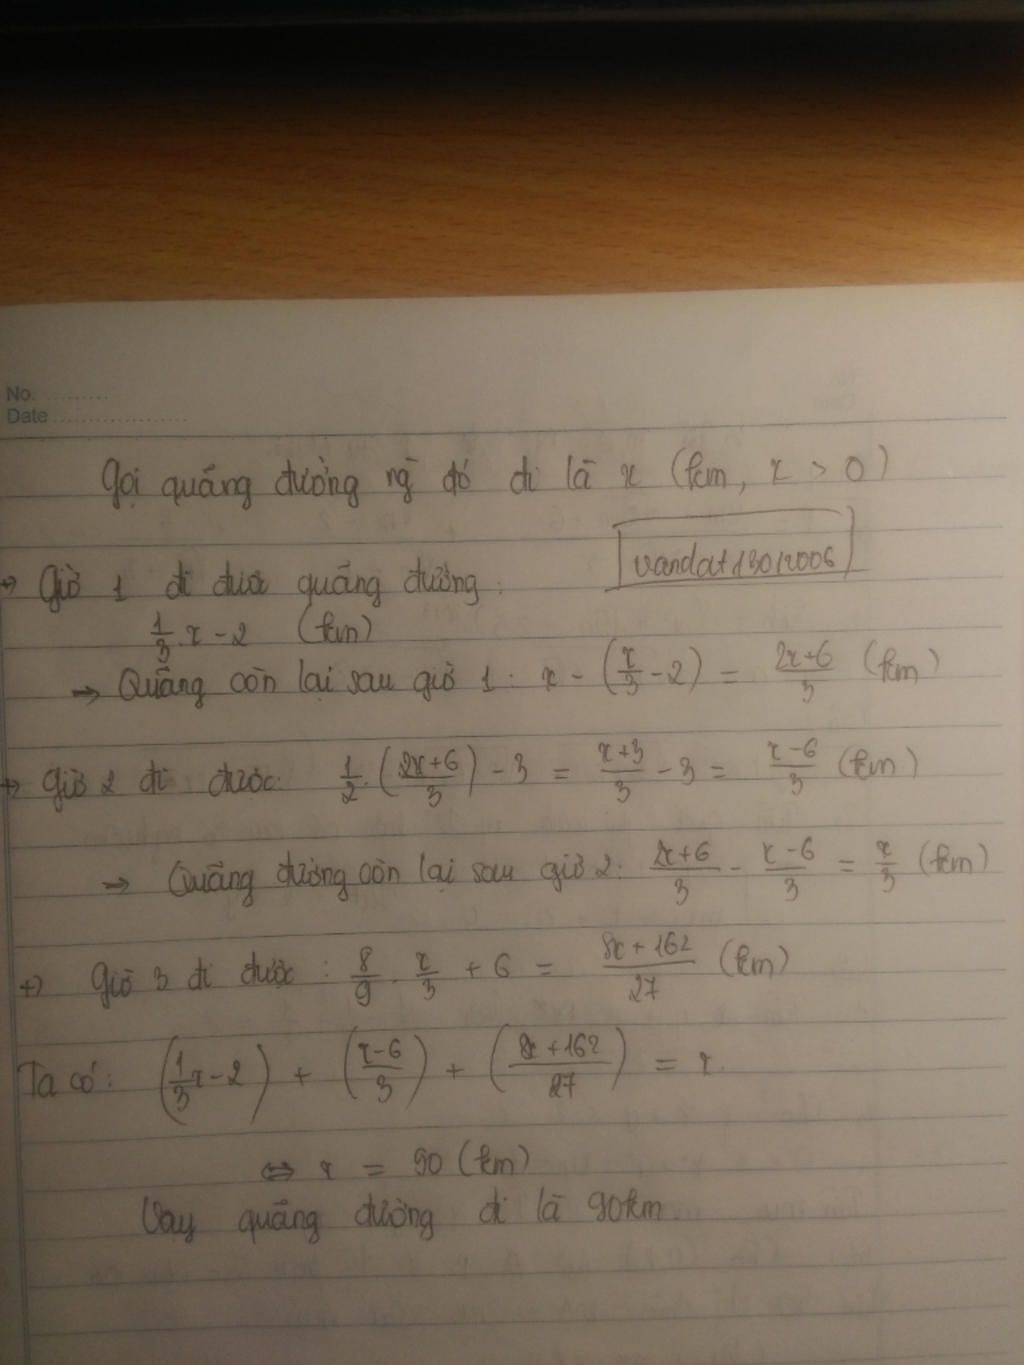 No. .........
Date ......................
Gọi quãng đường ng đó đi là x (km, x > 0)
vandat13012006
+) Giờ 1 đi được quãng đường:
1/3 . x - 2 (km)
→ Quãng còn lại sau giờ 1: x - (x/3 - 2) = (2x+6)/3 (km)
+) Giờ 2 đi được: 1/2 . ((2x+6)/3) - 3 = (x+3)/3 - 3 = (x-6)/3 (km)
→ Quãng đường còn lại sau giờ 2: (2x+6)/3 - (x-6)/3 = x/3 (km)
+) Giờ 3 đi được: 8/9 . x/3 + 6 = (8x+162)/27 (km)
Ta có: (1/3 x - 2) + ((x-6)/3) + ((8x+162)/27) = x
⇔ x = 90 (km)
Vậy quãng đường đi là 90km.